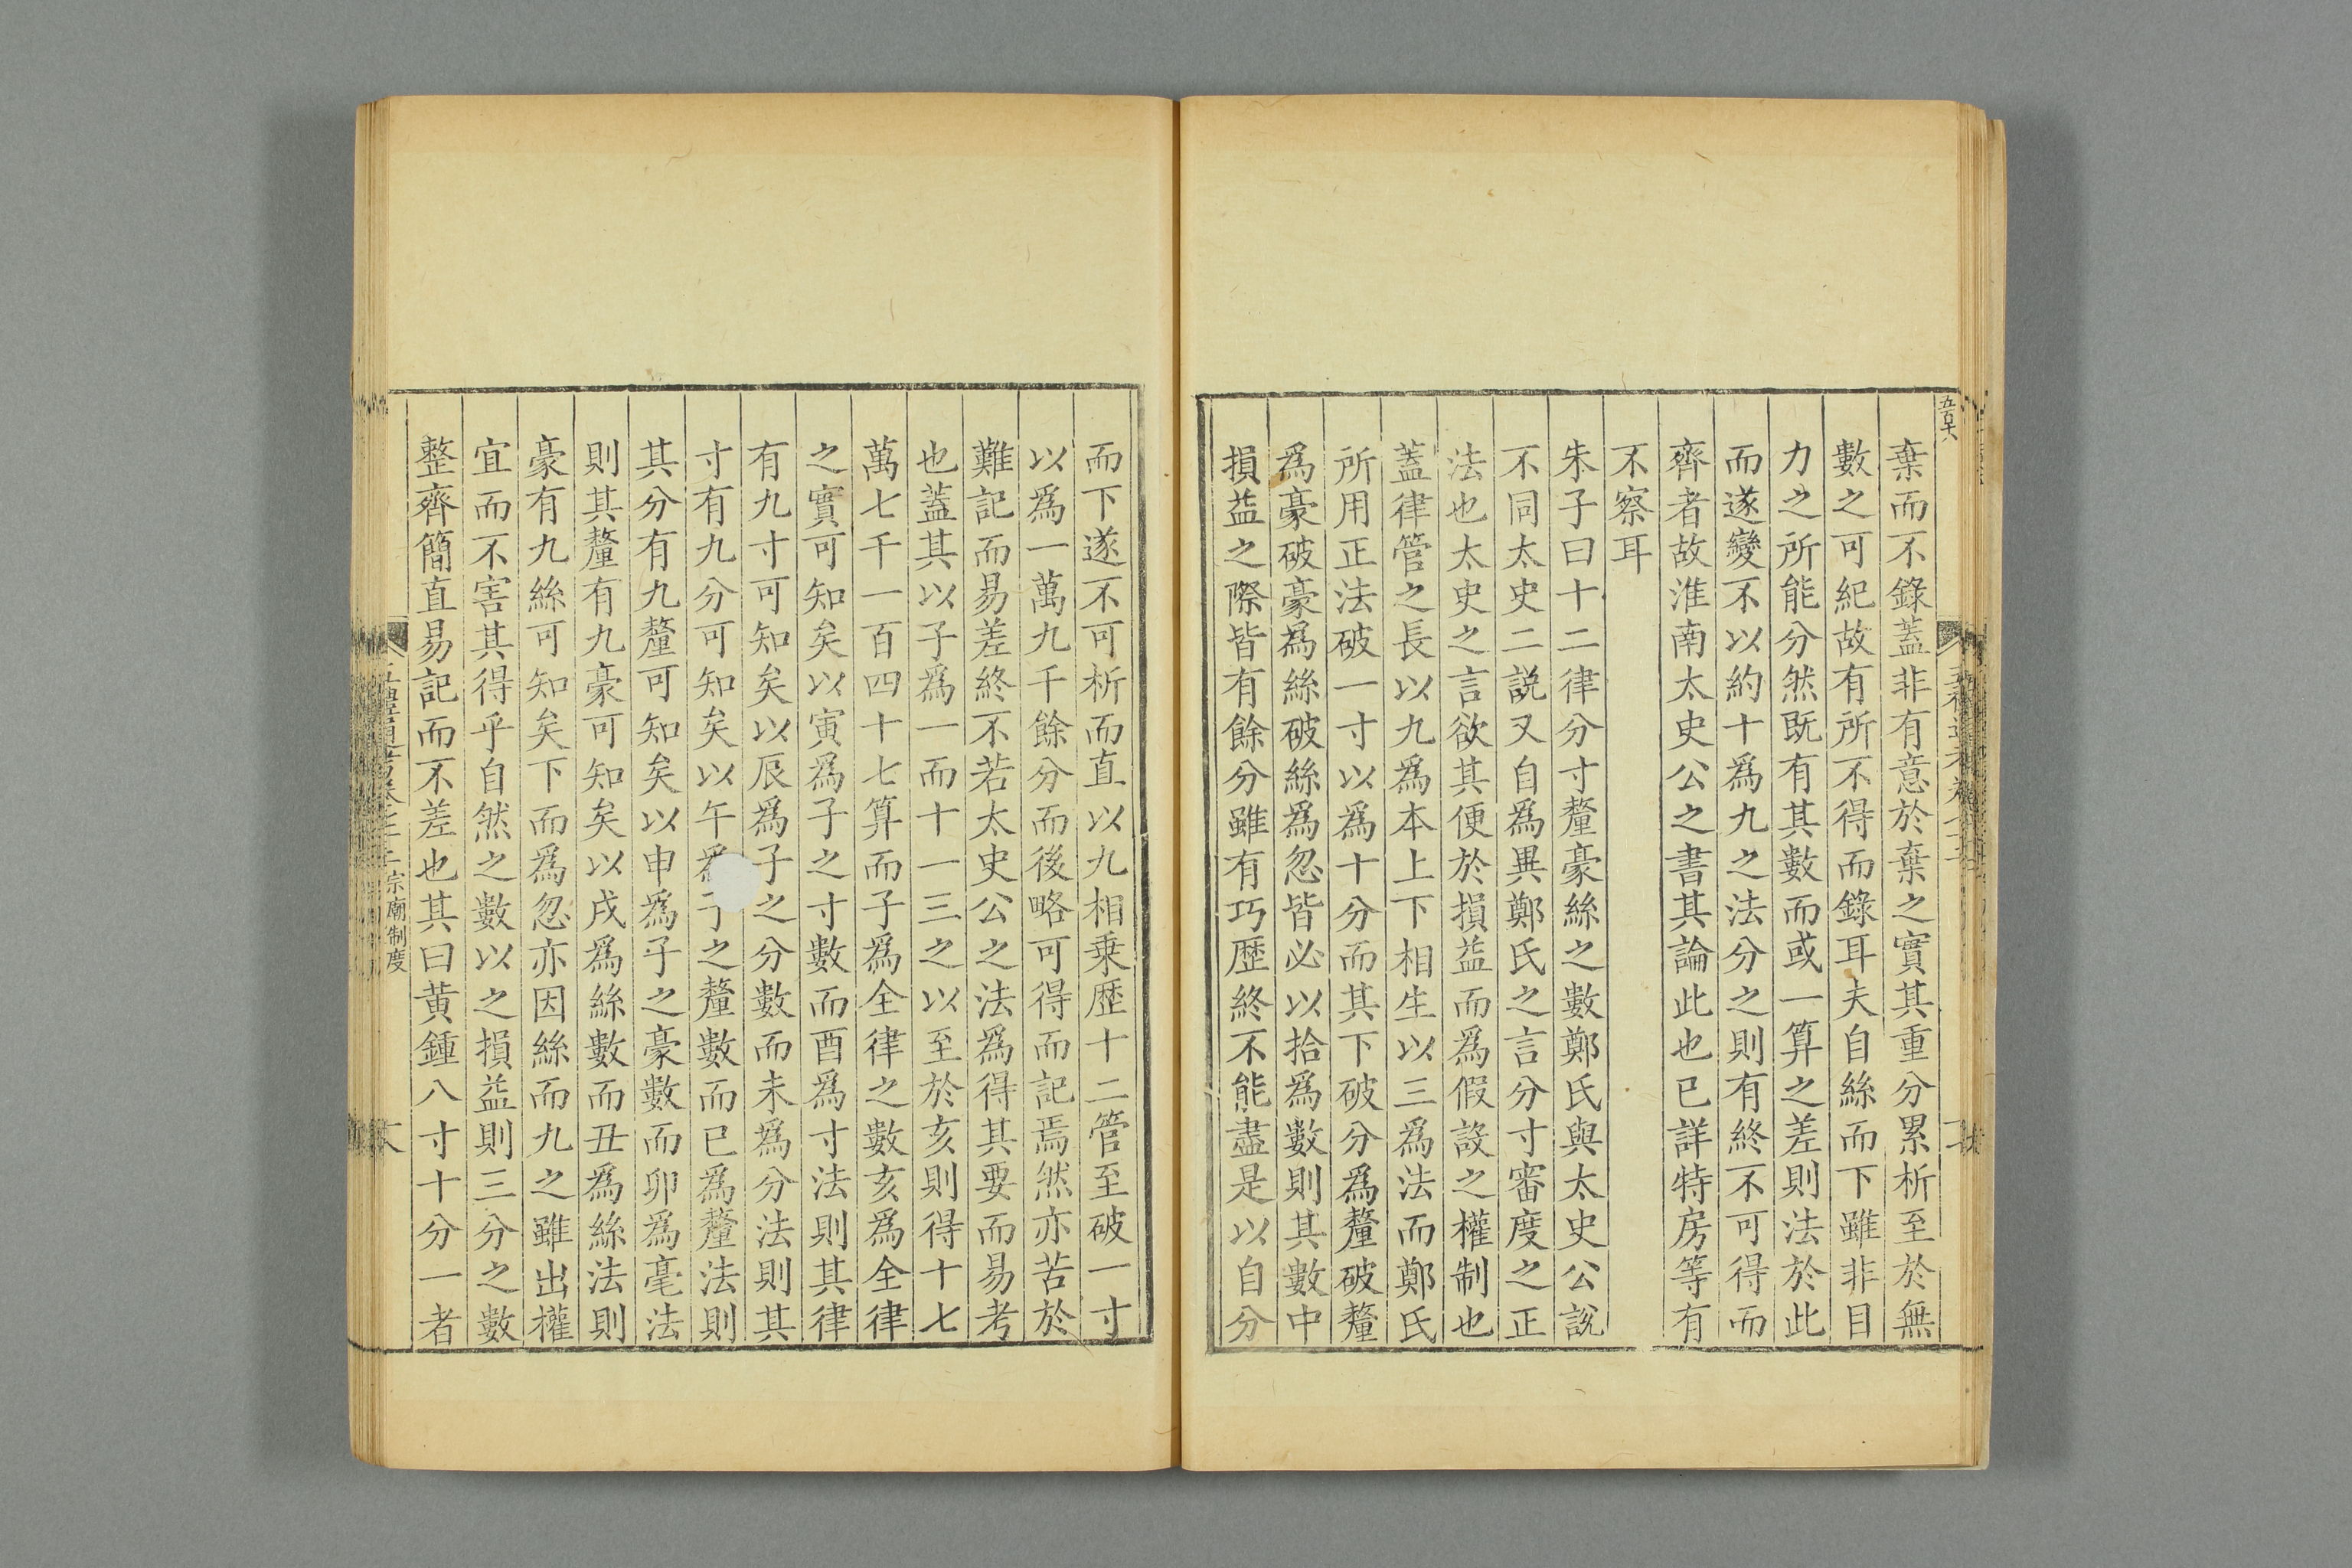 棄而不錄蓋非有意於棄之實其重分累析至於無
數之可紀故有所不得而錄耳夫自絲而下雖非目
力之所能分然既有其數而或一算之差則法於此
而遂變不以約十爲九之法分之則有終不可得而
齊者故淮南太史公之書其論此也已詳特房等有
不察耳
朱子曰十二律分寸釐豪絲之數鄭氏與太史公說
不同太史二説又自爲異鄭氏之言分寸審度之正
法也太史之言欲其便於損益而爲假設之權制也
蓋律管之長以九爲本上下相生以三爲法而鄭氏
所用正法破一寸以爲十分而其下破分爲釐破釐
爲豪破豪爲絲破絲爲忽皆必以拾爲數則其數中
損益之際皆有餘分雖有巧歷終不能盡是以自分
而下遂不可析而直以九相乗歷十二管至破一寸
以爲一萬九千餘分而後略可得而記焉然亦苦於
難記而易差終不若太史公之法爲得其要而易考
也蓋其以子爲一而十一三之以至於亥則得十七
萬七千一百四十七算而子爲全律之數亥爲全律
之實可知矣以寅爲子之寸數而酉爲寸法則其律
有九寸可知矣以辰爲子之分數而未爲分法則其
寸有九分可知矣以午之釐數而已爲釐法則
其分有九釐可知矣以申爲子之豪數而卯爲毫法
則其釐有九豪可知矣以戌爲絲數而丑爲絲法則
豪有九絲可知矣下而爲忽亦因絲而九之雖出權
宜而不害其得乎自然之數以之損益則三分之數
整齊簡直易記而不差也其曰黄鍾八寸十分一者
宗廟制度